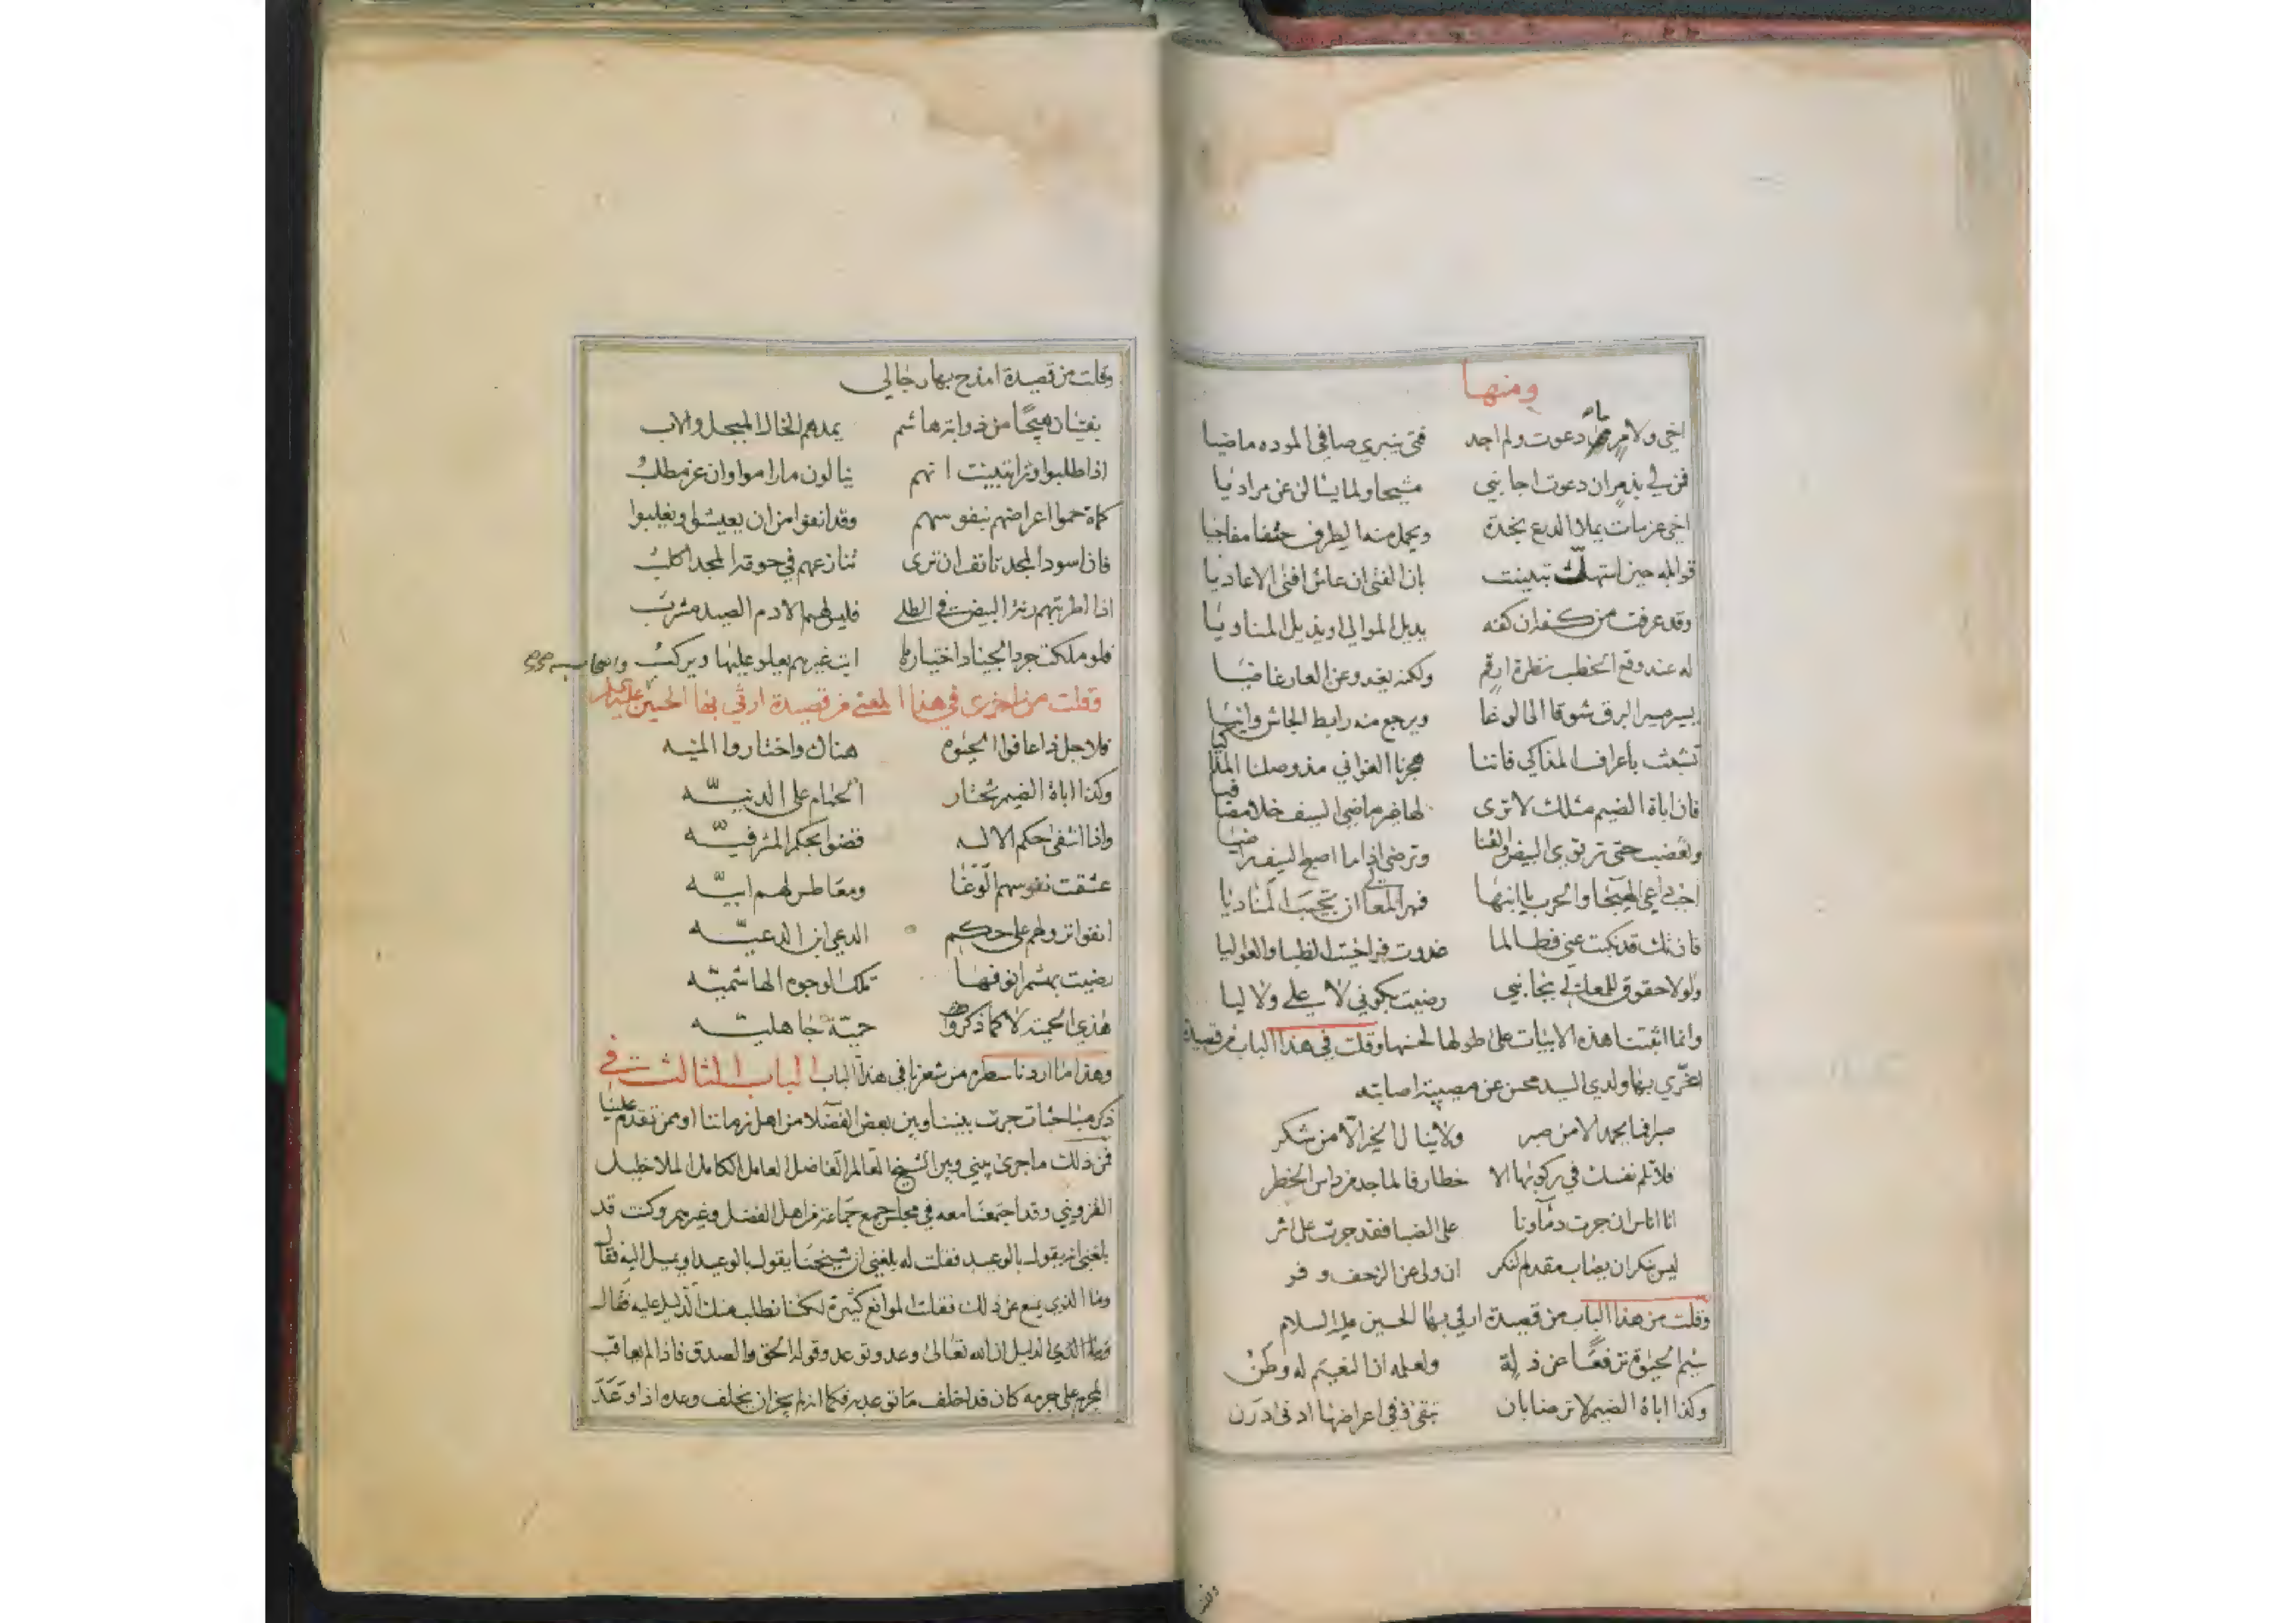 ومنها
اخي ولا مر ما دعوت ولم اجد فتى ينبري صافي الموده ماضيا
فمن لي بذمر ان دعوت اجابني مشيحا ولما يسألن عن مراديا
اخي عزمات يملأ الدرع نجدة ويحمل منه الطرف حتفا مفاجيا
قوابله حين استهلت تبينت بان الفتى ان عاش افنى الاعاديا
وقد عرفت من كفه ان كفه يديل الموالي او يذيل المناويا
له عند وقع الخطب نظرة ارقم ولكنه يغدو عن العار غاضيا
يسير مسير البرق شوقا الى الوغا ويرجع منه رابط الجاش وانيا
تشبثت بأعراف المذاكي فاننا هجرنا الغواني مذ وصلنا المذاكيا
فان اباة الضيم مثلك لا ترى لها غير ماضي السيف خلا مصافيا
وتغضب حتى ترتوي البيض والقنا وترضى اذا ما اصبح السيف راضيا
اجب داعي الهيجا والحرب يا ابنها فمهر المعالي ان تجيب المناديا
فان تك قد نكبت عني فطالما
ولولا حقوق للمعالي رضيت بكوني لا علي ولا ليا
وانما اثبتنا هذه الابيات على طولها لحسنها وقلت في هذا الباب من قصيدة
اعزي بها ولدي السيد محسن عن مصيبة اصابته
صبرا فما يحمد الا من صبر ولا ينال الخير الا من شكر
فلا تلم نفسك في ركوبها الا خطار فالماجد من داس الخطر
انا اناس ان جرت دماؤنا على الضبا فقد جرت على اثر
ليس بنكر ان يصاب مقدم النكر ان ولى عن الزحف وفر
وقلت من هذا الباب من قصيدة ارثي بها الحسين عليه السلام
سئم الحيوة ترفعًا عن ذلة ولعله ان النعيم له وطن
وكذا اباة الضيم لا ترضا بان تبقى وفي اعراضها ادنى درن
وقلت من قصيدة امدح بها رجالي
بفتيان هيجًا من ذوابة هاشم يمدهم الخال المبجل والاب
اذا طلبوا وترا تبينت انهم ينالون ما راموا وان عز مطلب
كماة حموا اعراضهم بنفوسهم وقد انفوا من ان يعيشوا ويغلبوا
فان اسود المجد تانف ان ترى تنازعهم في حوزة المجد اكلب
اذا اطربتهم رنة البيض في الطلى فليس لهم الا دم الصيد مشرب
فلو ملكت جرد الجياد اختيارها ابت غيرهم يعلو عليها ويركب
وقلت من اخرى في هذا المعنى من قصيدة ارثي بها الحسين عليه السلام
فلاجل ذا عافوا الحيوة هناك واختاروا المنيه
وكذا اباة الضيم تختار الحمام على الدنيّه
واذا انتفى حكم الاله قضوا بحكم المشرفيّه
عشقت نفوسهم الوغا ومعاطس لهم ابيّه
انفوا نزولهم على حكم الدعي ابن الدعيّه
رضيت بهشم انوفها تلك الوجوه الهاشميّه
هذي الحمية لا كما ذكروا حميّة جاهليّه
وهذا ما اردنا سطره من شعرنا في هذا الباب الباب الثالث في
ذكر مباحثات جرت بيننا وبين بعض الفضلا من اهل زماننا او ممن تقدم علينا
فمن ذلك ما جرى بيني وبين الشيخ العالم الفاضل العامل الكامل الملا خليل
القزويني وقد اجتمعنا معه في مجلس جمع جماعة من اهل الفضل وغيرهم وكنت قد
بلغني انه يقول بالوعيد فقلت له بلغني ان شيخنا يقول بالوعيد او يميل اليه فقال
وما الذي يمنع عن ذلك فقلت الموانع كثيرة لكننا نطلب منك الدليل عليه فقال
الدليل ان الله تعالى وعد وتوعد وقوله الحق والصدق فاذا لم يعاقب
المجرم على جرمه كان قد اخلف ما توعد به فكما انه لم يجز ان يخلف وعده اذا وعد